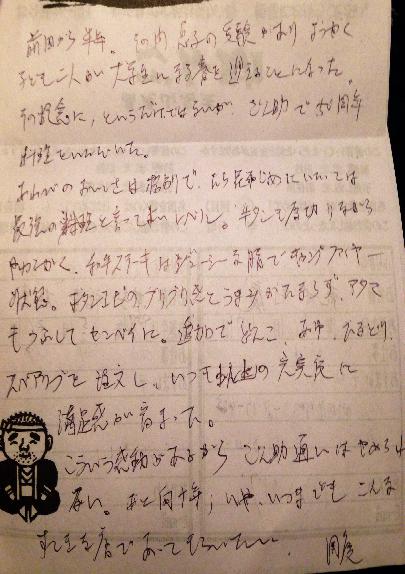 前回から半年。その内息子の受験があり ようやく
子ども二人が大学生になる春を迎えることになった。
その記念に、というだけではないが、ごん助で50周年
料理をいただいた。
おいしさは格別で、たら昆布じめにいたっては
最強の料理と言ってよいレベル。牛タンも厚切りながら
やわらかく、和牛ステーキはジューシーな脂でキャンプファイヤー
状態。ボタンエビのプリプリ感とうまみがたまらず、アタマ
もつぶしてセンベイに。追加で
スペアリブを注文し、いつも以上の充実度に
満足感が高まった。
こういう感動があるから ごん助通いはやめられ
ない。あと何十年、いや、いつまでも こんな
すてきな店であってもらいたい。